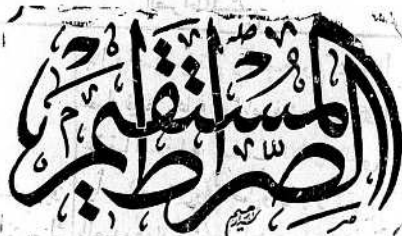 الصِّرَاطُ الْمُسْتَقِيمُ